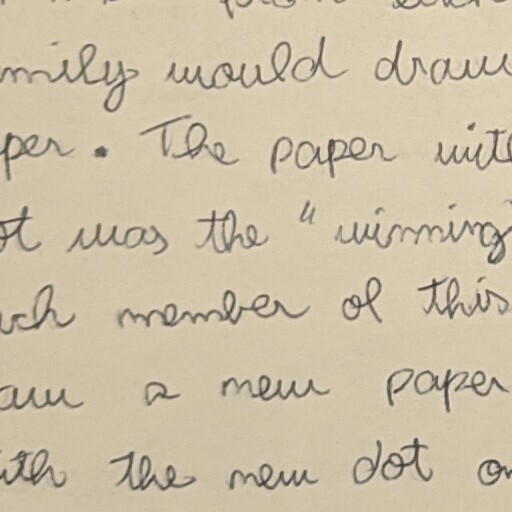 mily would draw
per. The paper with
ot was the "winning
ach member of this
aw a new paper
ith the new dot on